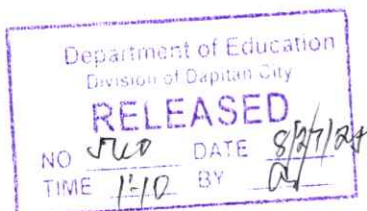 Department of Education
Division of Dapitan City
RELEASED
NO DATE 8/27/24
TIME 1:10 BY